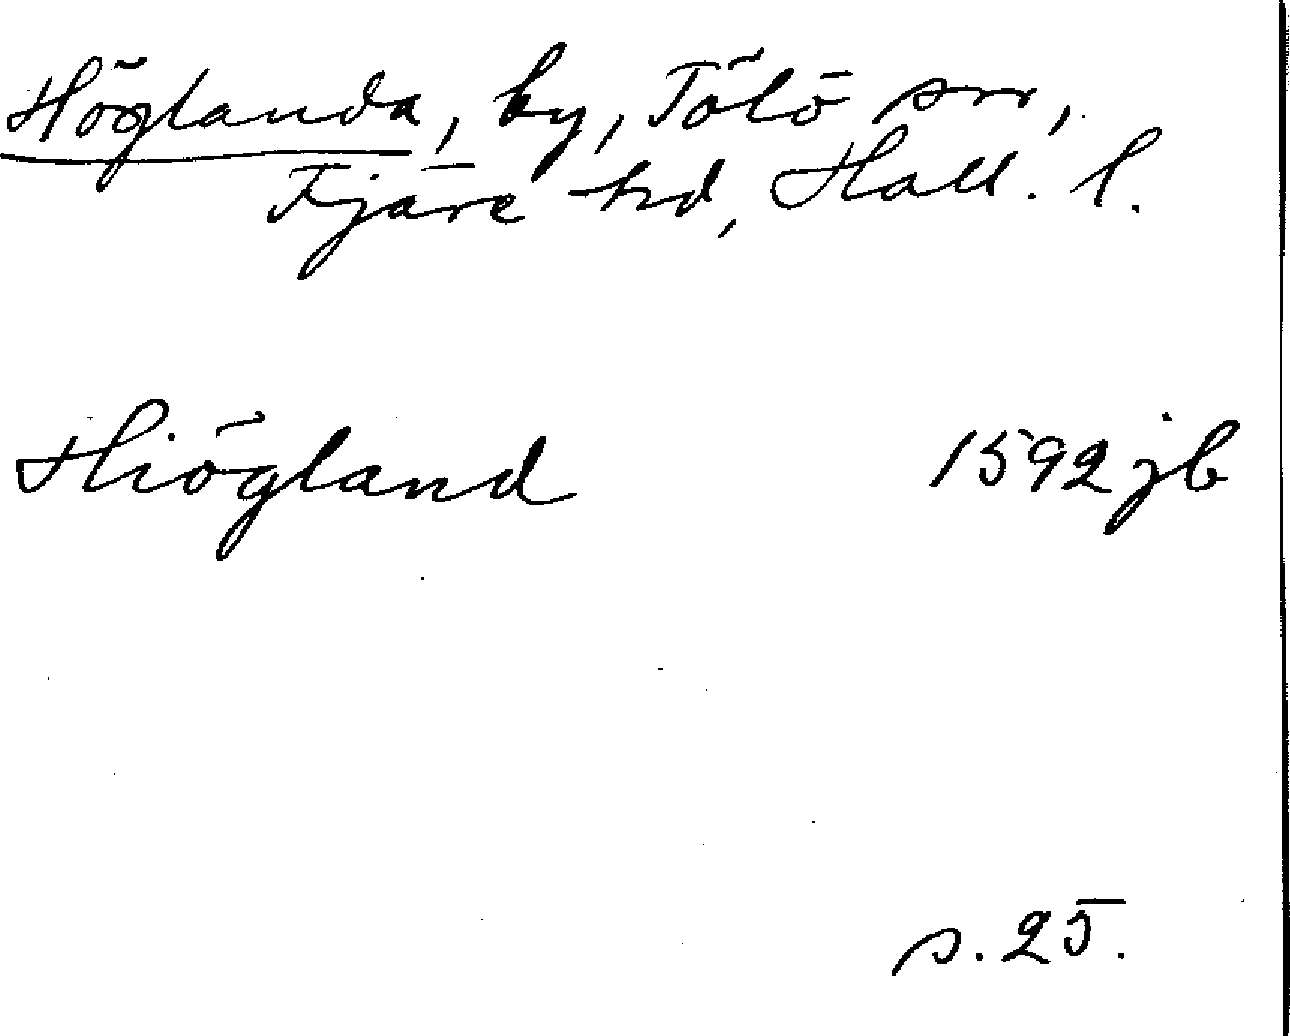 Höglanda, by, Tölö sn,
Fjäre hd, Hall. l.
Hiögland 1592 jb
s. 25.